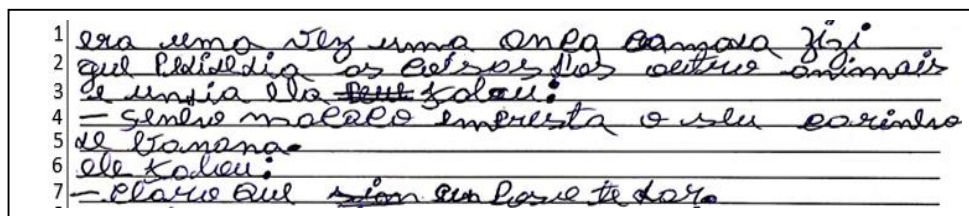 1 era uma vez uma onça camada Zizi
2 que Pedia os coisas dos outro animais
3 e undia ela falou:
4 – senhro macaco empresta o seu carinho
5 de banana.
6 ele falou:
7 – claro que sim eu Poso te dar.